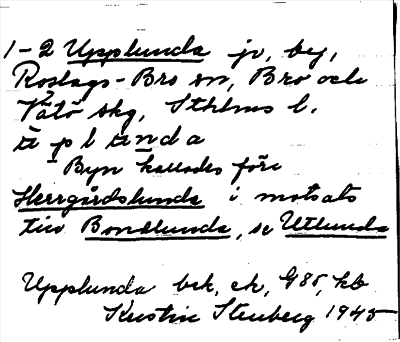 1-2 Upplunda jv, by,
Roslags-Bro sn, Bro och
Vätö skg, Sthlms l.
ùplùnda
Byn kallades förr
Herrgårdslunda i motsats
till Bondlunda, se Utlunda
Upplunda bek, ek, G85, kb
Kerstin Stenberg 1945